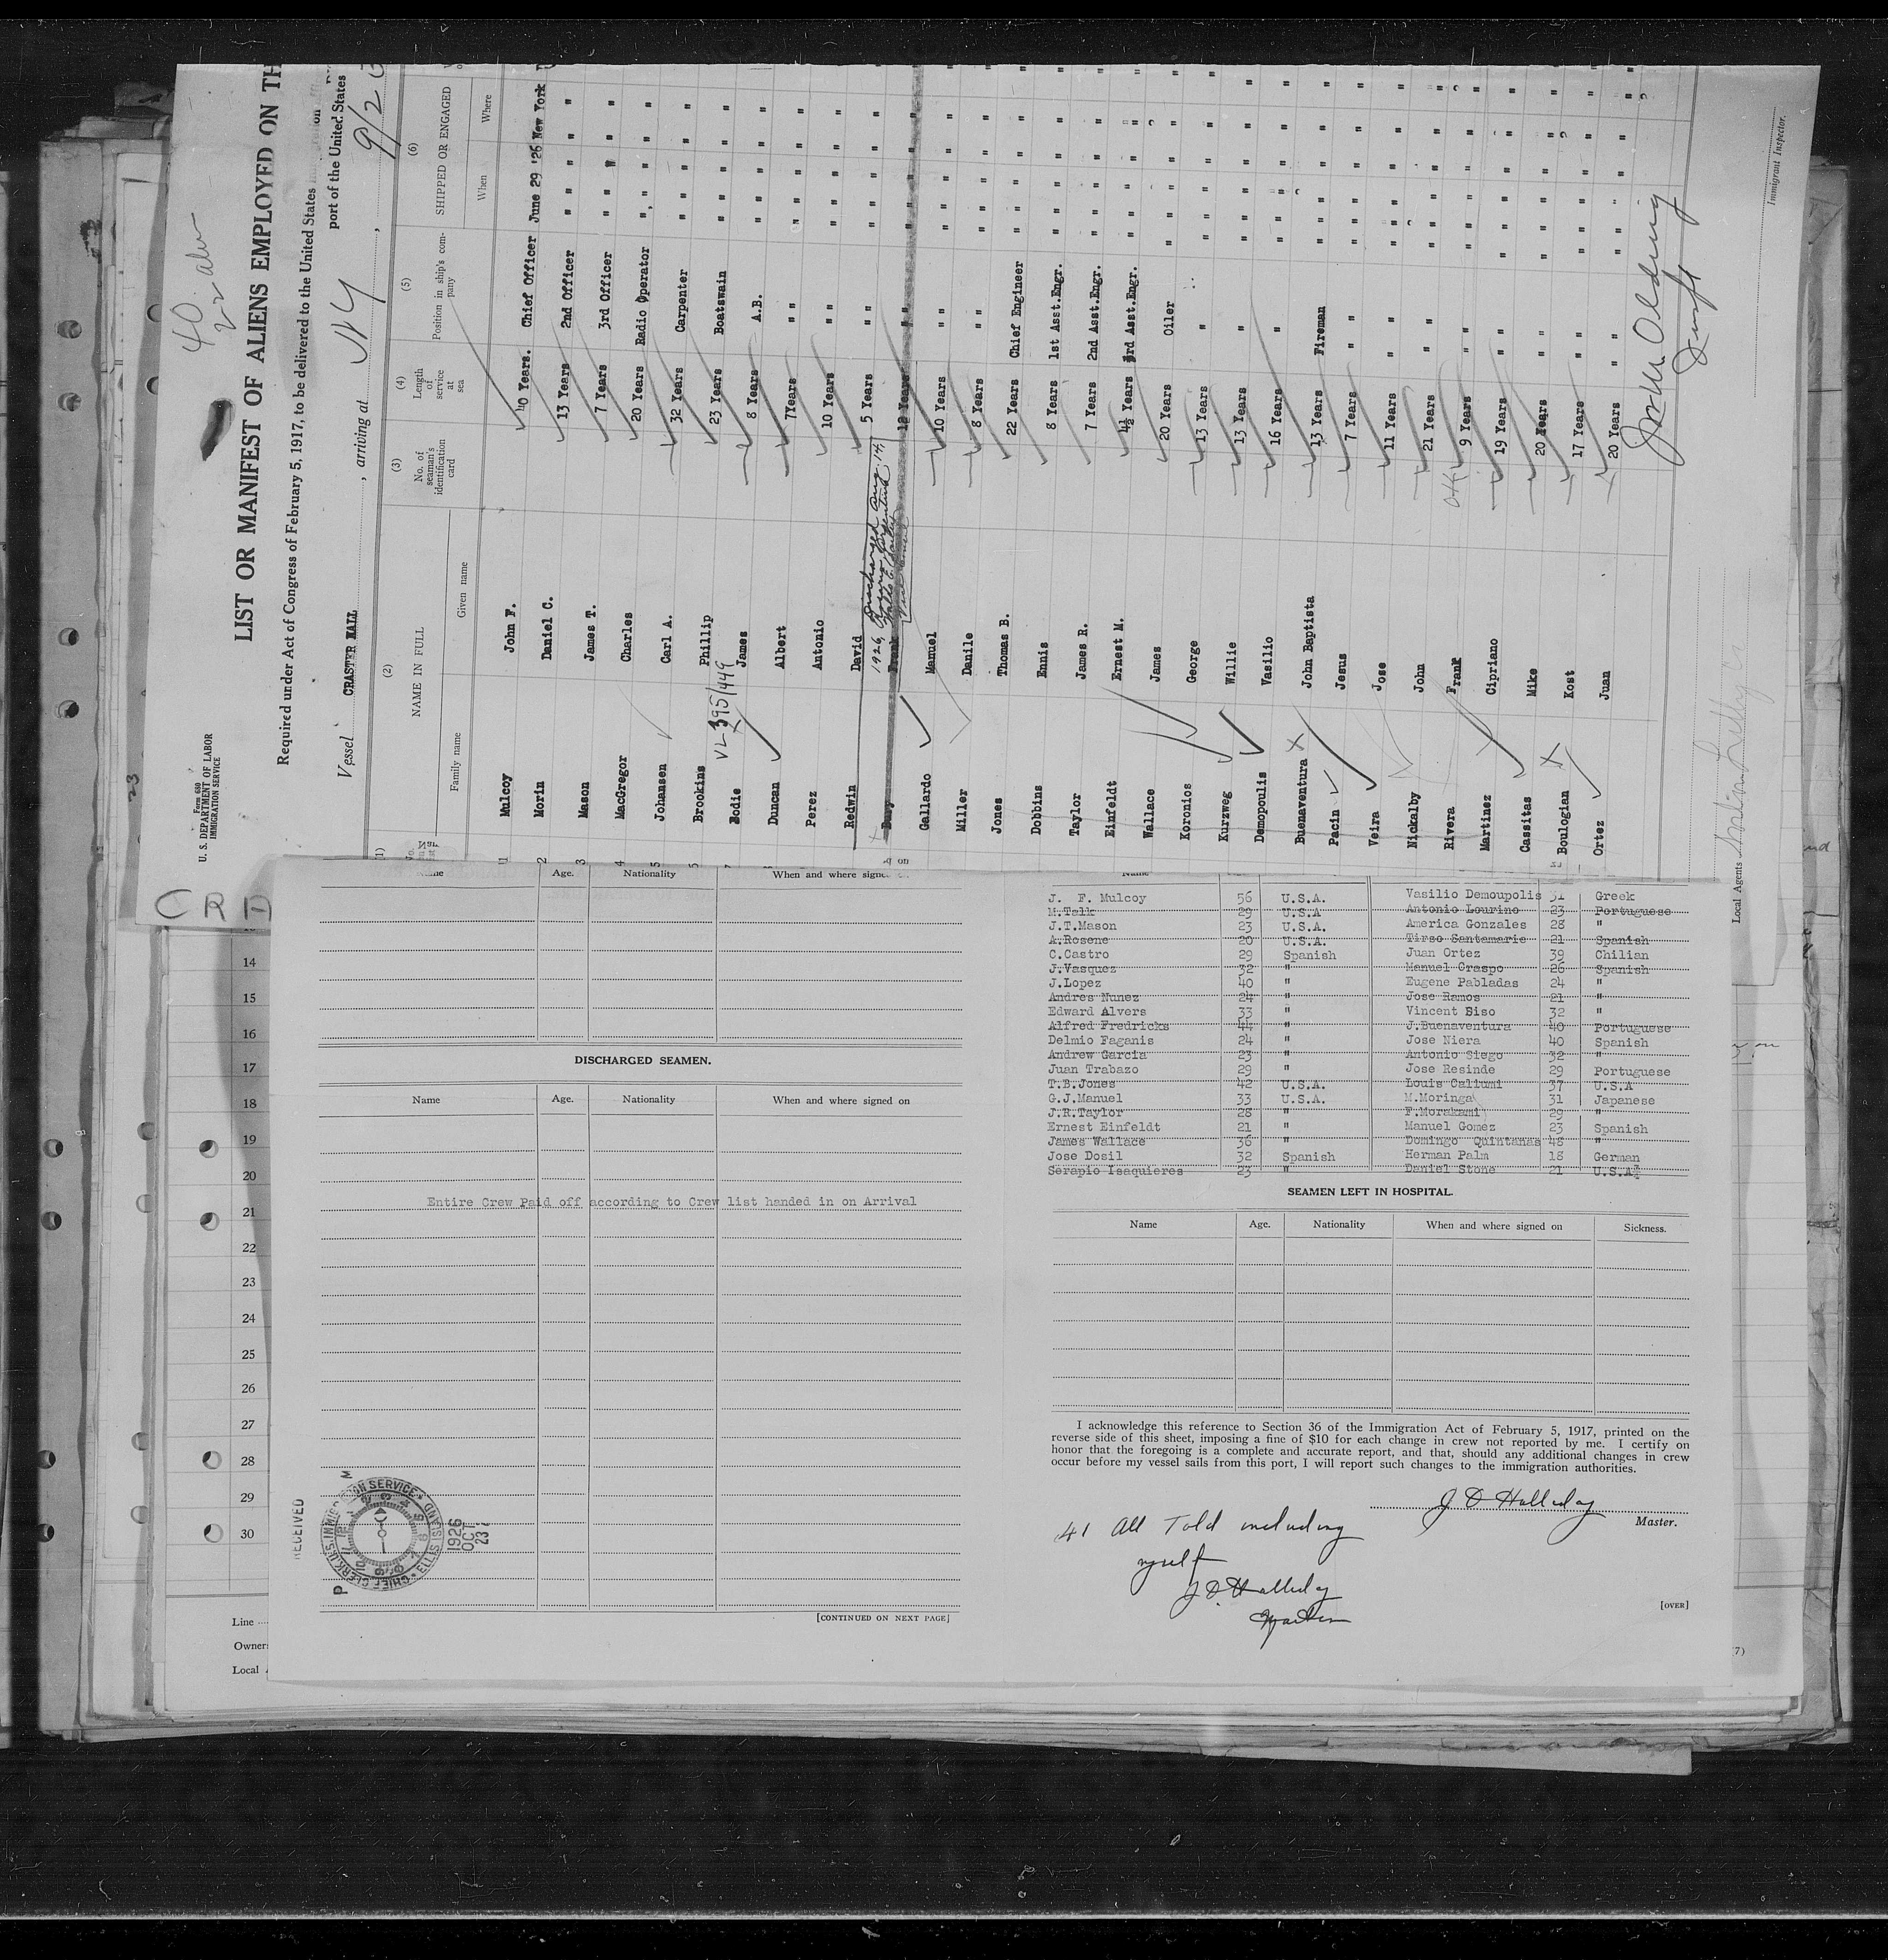 40
22 alm
Form 680
U. S. DEPARTMENT OF LABOR
IMMIGRATION SERVICE
LIST OR MANIFEST OF ALIENS EMPLOYED ON TH
Required under Act of Congress of February 5, 1917, to be delivered to the United States
port of the United States
Vessel CRASTER HALL, arriving at N Y, 9/2
(1) (2) (3) (4) (5) (6)
NAME IN FULL
Family name Given name
No. of seaman's identification card
Length of service at sea
Position in ship's company
SHIPPED OR ENGAGED
When Where
1 Mulcoy John F. 40 Years. Chief Officer June 29 '26 New York
2 Morin Daniel C. 13 Years 2nd Officer " " " "
3 Mason James T. 7 Years 3rd Officer " " " "
4 MacGregor Charles 20 Years Radio Operator " " " "
5 Johansen Carl A. 32 Years Carpenter " " " "
Brookins Phillip 23 Years Boatswain " " " "
VL 395/449
7 Bodie James 8 Years A.B. " " " "
Duncan Albert 7Years " " " " " "
Perez Antonio 10 Years " " " " " "
Redwin David 5 Years " " " " " "
Discharged Aug. 14,
1926, Rosario Argentina
Frank 12 Years " " " " " "
Gallardo Manuel 10 Years " " " " " "
Miller Danile 8 Years " " " " " "
Jones Thomas B. 22 Years Chief Engineer " " " "
Dobbins Ennis 8 Years 1st Asst.Engr. " " " "
Taylor James R. 7 Years 2nd Asst.Engr. " " " "
Einfeldt Ernest M. 4½ Years 3rd Asst.Engr. " " " "
Wallace James 20 Years Oiler " " " "
Koronios George 13 Years " " " " "
Kurzweg Willie 13 Years " " " " "
Demopoulis Vasilio 16 Years " " " " "
Buenaventura John Baptista 13 Years Fireman " " " "
Pacin Jesus 7 Years " " " " " "
Veira Jose 11 Years " " " " "
Nickalby John 21 Years " " " " "
Rivera Frank OK 9 Years " " " " "
Martinez Cipriano 19 Years " " " " " "
Cassitas Mike 20 Years " " " " "
Boulogian Kost 17 Years " " " " " "
Ortez Juan 20 Years " " " " " "
Immigrant Inspector.
Local Agents
CRA
14
15
16
17
18
19
20
21
22
23
24
25
26
27
28
29
30
Line
Owner
Local
Name Age. Nationality When and where signed on
DISCHARGED SEAMEN.
Name Age. Nationality When and where signed on
Entire Crew Paid off according to Crew list handed in on Arrival
RECEIVED
CHIEF CLERK U.S. IMMIGRATION SERVICE ELLIS ISLAND
1926
OCT
23
P M
[CONTINUED ON NEXT PAGE]
J. F. Mulcoy 56 U.S.A. Vasilio Demoupolis 31 Greek
M.Talk 29 U.S.A Antonio Lourino 23 Portuguese
J.T.Mason 23 U.S.A. America Gonzales 28 "
A.Rosene 20 U.S.A. Tirso Santamarie 21 Spanish
C.Castro 29 Spanish Juan Ortez 39 Chilian
J.Vasquez 32 " Manuel Craspo 26 Spanish
J.Lopez 40 " Eugene Pabladas 24 "
Andres Nunez 24 " Jose Ramos 21 "
Edward Alvers 33 " Vincent Siso 32 "
Alfred Fredricks 44 " J.Buenaventura 40 Portuguese
Delmio Faganis 24 " Jose Niera 40 Spanish
Andrew Garcia 23 " Antonio Siego 32 "
Juan Trabazo 29 " Jose Resinde 29 Portuguese
T.B.Jones 42 U.S.A. Louis Caliumi 37 U.S.A
G.J.Manuel 33 U.S.A. M.Moringa 31 Japanese
J.R.Taylor 28 " F.Morakami 29 "
Ernest Einfeldt 21 " Manuel Gomez 23 Spanish
James Wallace 36 " Domingo Quintanas 48 "
Jose Dosil 32 Spanish Herman Palm 18 German
Serapio Isaquieres 23 " Daniel Stone 21 U.S.A.
SEAMEN LEFT IN HOSPITAL.
Name Age. Nationality When and where signed on Sickness.
I acknowledge this reference to Section 36 of the Immigration Act of February 5, 1917, printed on the
reverse side of this sheet, imposing a fine of $10 for each change in crew not reported by me. I certify on
honor that the foregoing is a complete and accurate report, and that, should any additional changes in crew
occur before my vessel sails from this port, I will report such changes to the immigration authorities.
J D Halliday
Master.
41 All Told including
myself
J D Halliday
Master
[OVER]